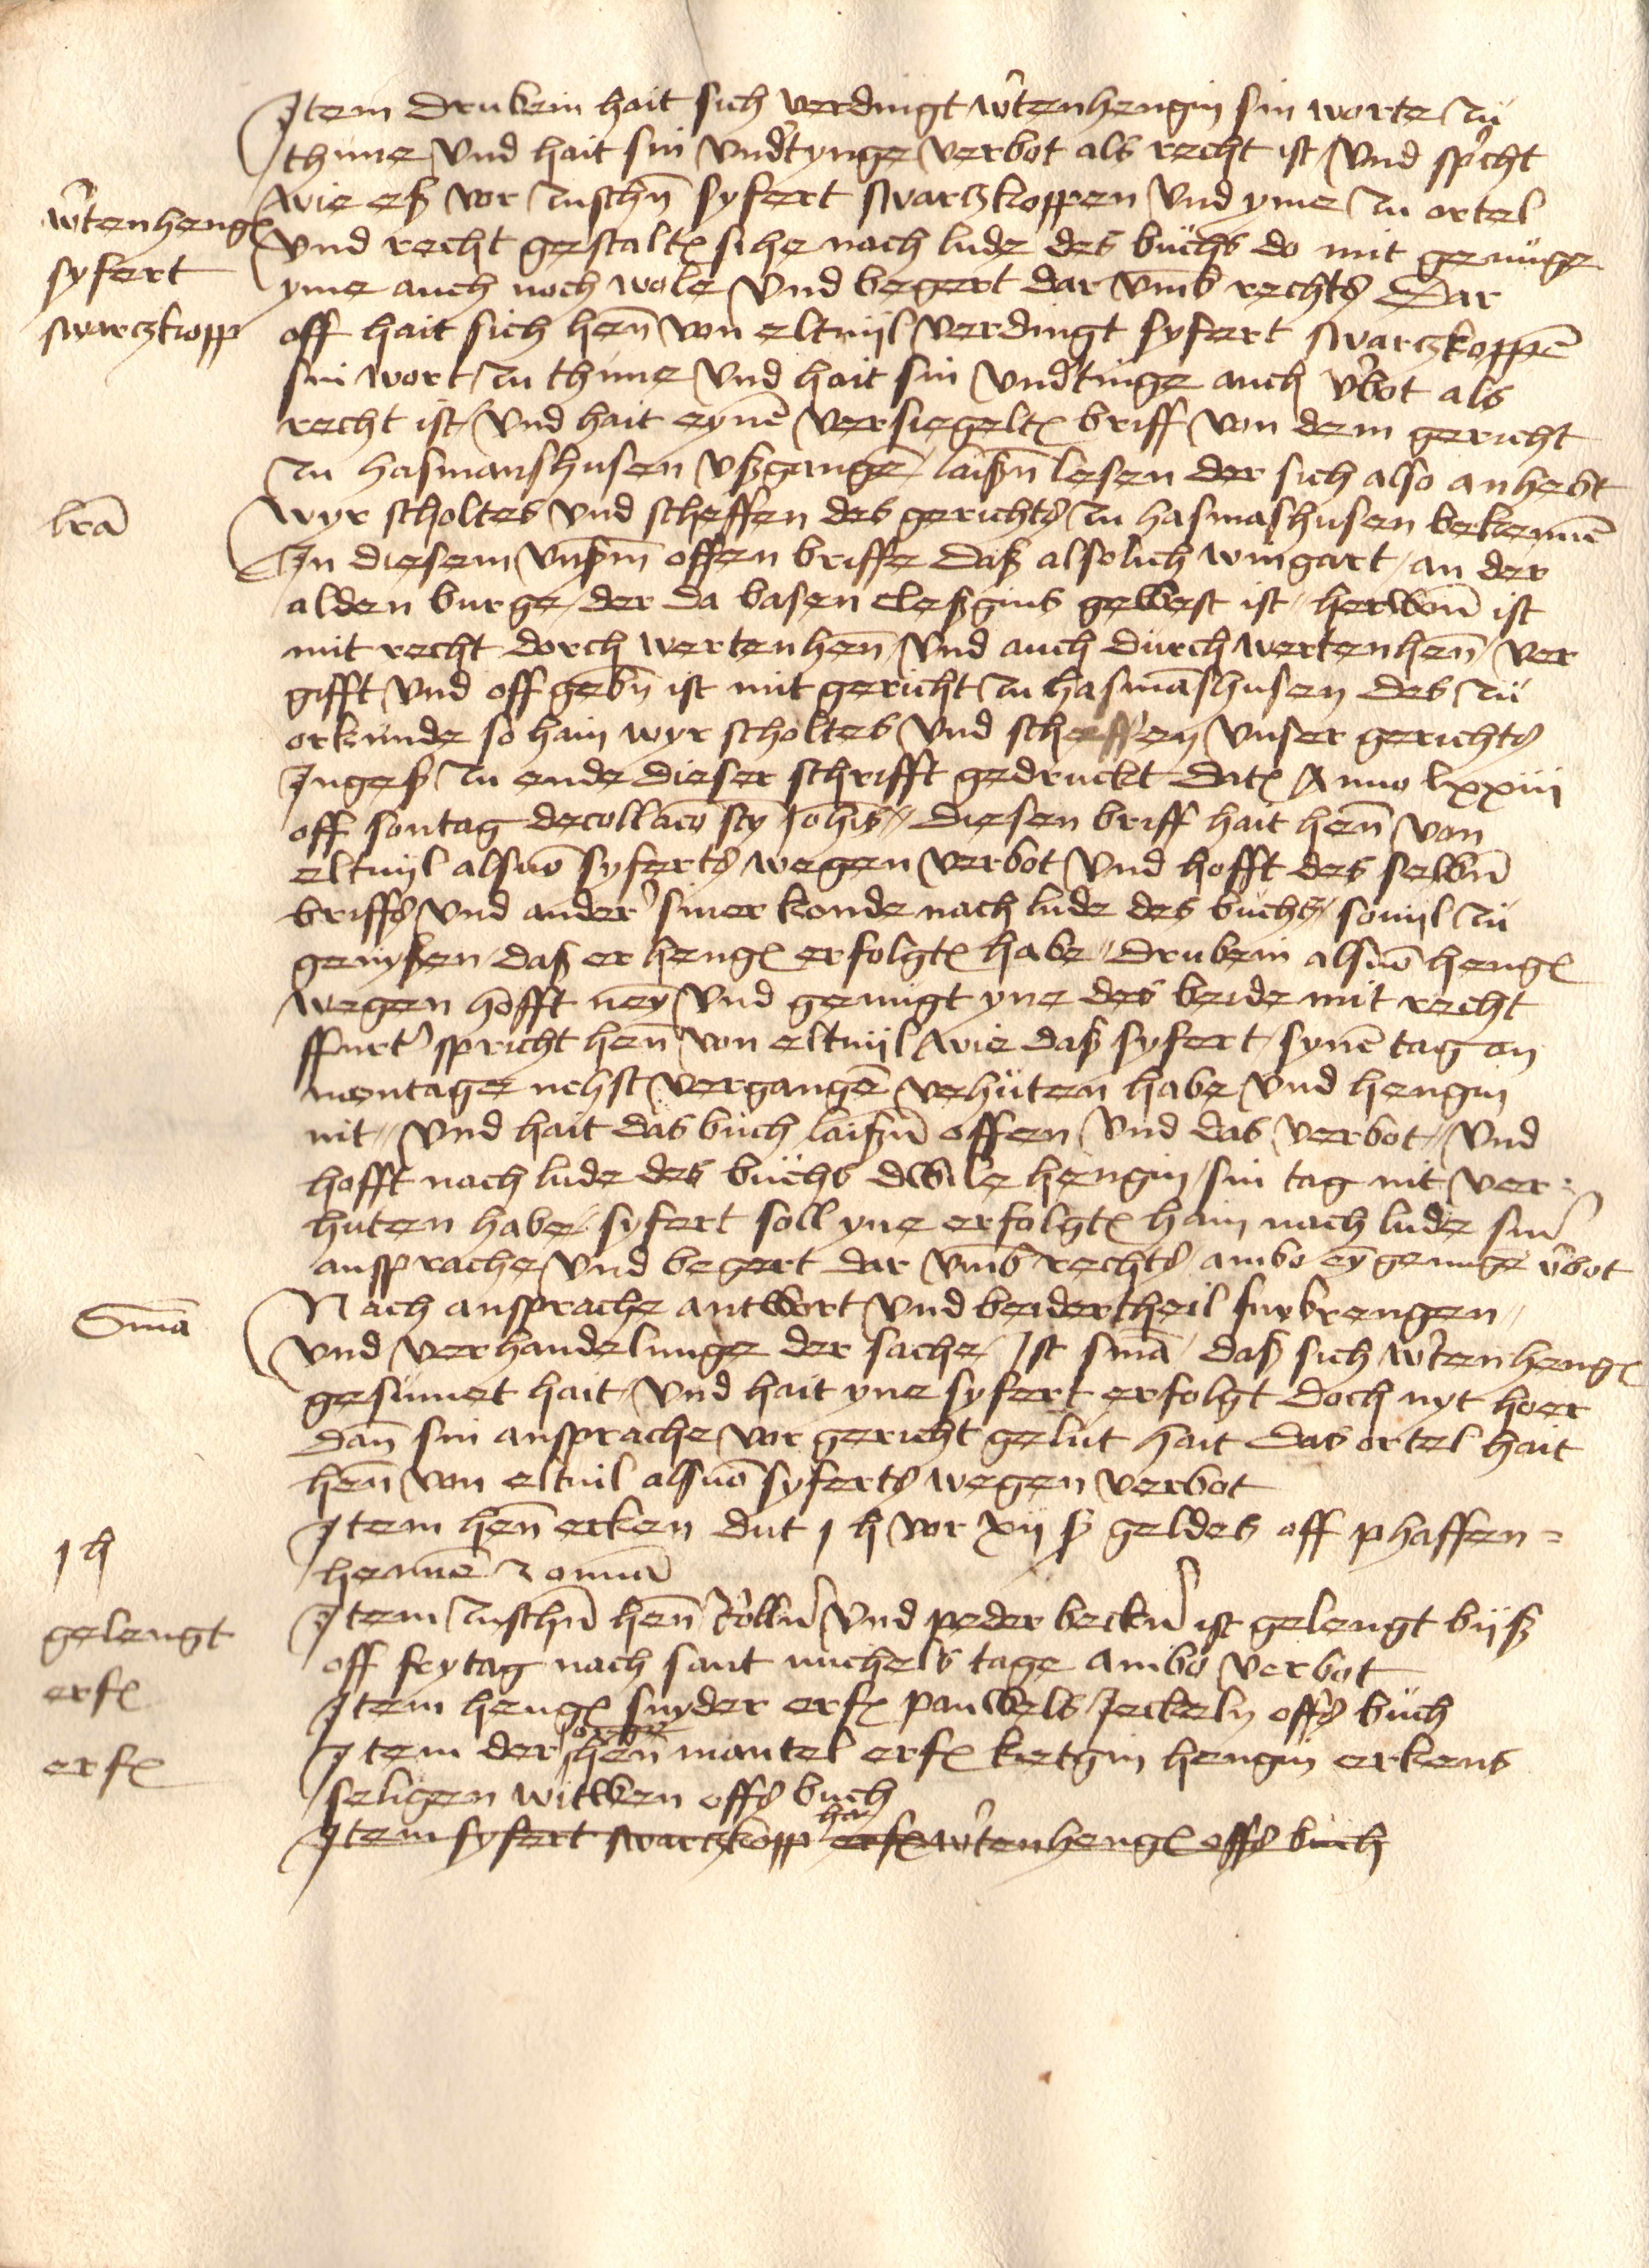 Item drubein hait sich verdingt w'tenhengin sin worte zu
thune und hait sin und'tynge verbot als recht ist und sp'cht
wie eß vor zuschn̄ syfert swarczkoppen und yme zu ortel
w'tenheng(in)
syfert
swarczkopp
und recht gestalt sihe nach lude des buchs do mit genuge
yme auch noch wole und begert dar vm̄b rechts Dar
off hait sich hen̄ von eltuijl verdingt syfert swarczkoppē
sin wort zu thune und hait sin und'tinge auch v'bot als
recht ist und hait eynē versiegelt briff von dem gericht
zu hasmanshusen ußgangē laißn̄ lesen der sich also anhebt
lrā
Wyr scholtes und scheffen des gerichts zu hasmashusen bekennē
In diesem unßm̄ offen briffe daß alsolich wingart an der
alden burge der da basen cleßgins gewest ist herwon̄ ist
mit recht dorch wertenhen̄ und auch durch wertenhen̄ ver
gifft und off gebn̄ ist mit gericht zu hasmāshusen des zu
orkunde so hain wyr scholtes und scheffen unser gerichts
Ingeß zu ende dieser schrifft gedruckt dat Anno lxxiiij
off sontag decollacō sty johīs diesen briff hait hen̄ von
eltuijl alsuō syferts wegen verbot und hofft des selbn̄
briffs und ander' siner konde nach lude des buchs souijl zu
genyßen daß er heng erfolgt habe drubein alsuō heng
wegen hofft ney und genugt yne des beide mit recht
ffurt' spricht hen̄ von eltuijl wie daß syfert synē tag an
montage nehst vergangē verhuten habe und hengin
nit und hait das buch laißn̄ offen und das verbot und
hofft nach lude des buchs dwile hengin sin tag nit ver
huten habe syfert soll yne erfolgt hain nach lude sin'
ansprache und begert dar vm̄b rechts ambo ey genugē v'bot
Sn̄ia
Nach ansprache antwort und beidertheil furbrengen
und verhandelunge der sache Ist sn̄ia daß sich w'tenheng
gesumet hait und hait yne syfert erfolgt doch nyt hoer
dan̄ sin ansprache vor gericht gelut hait das ortel hait
hen̄ von eltuil alsuō syferts wegen verbot
1 h
Item hen̄ erken dut 1 h vor xij ß geldes off phaffen
hennē 2 om̄ia
gelengt
Item zuschn̄ hen̄ koll'n und peder beck'n ist gelengt bijß
off frytag nach sant michels tage ambo verbot
erf
Item heng snyder erf pauwels Jeckeln offs buch
erf
Item der hen̄ mantel erf ketgin hengin erkens
seligen witwen offs buch
Item syfert swarczkopp hat erf w'tenheng offs buch